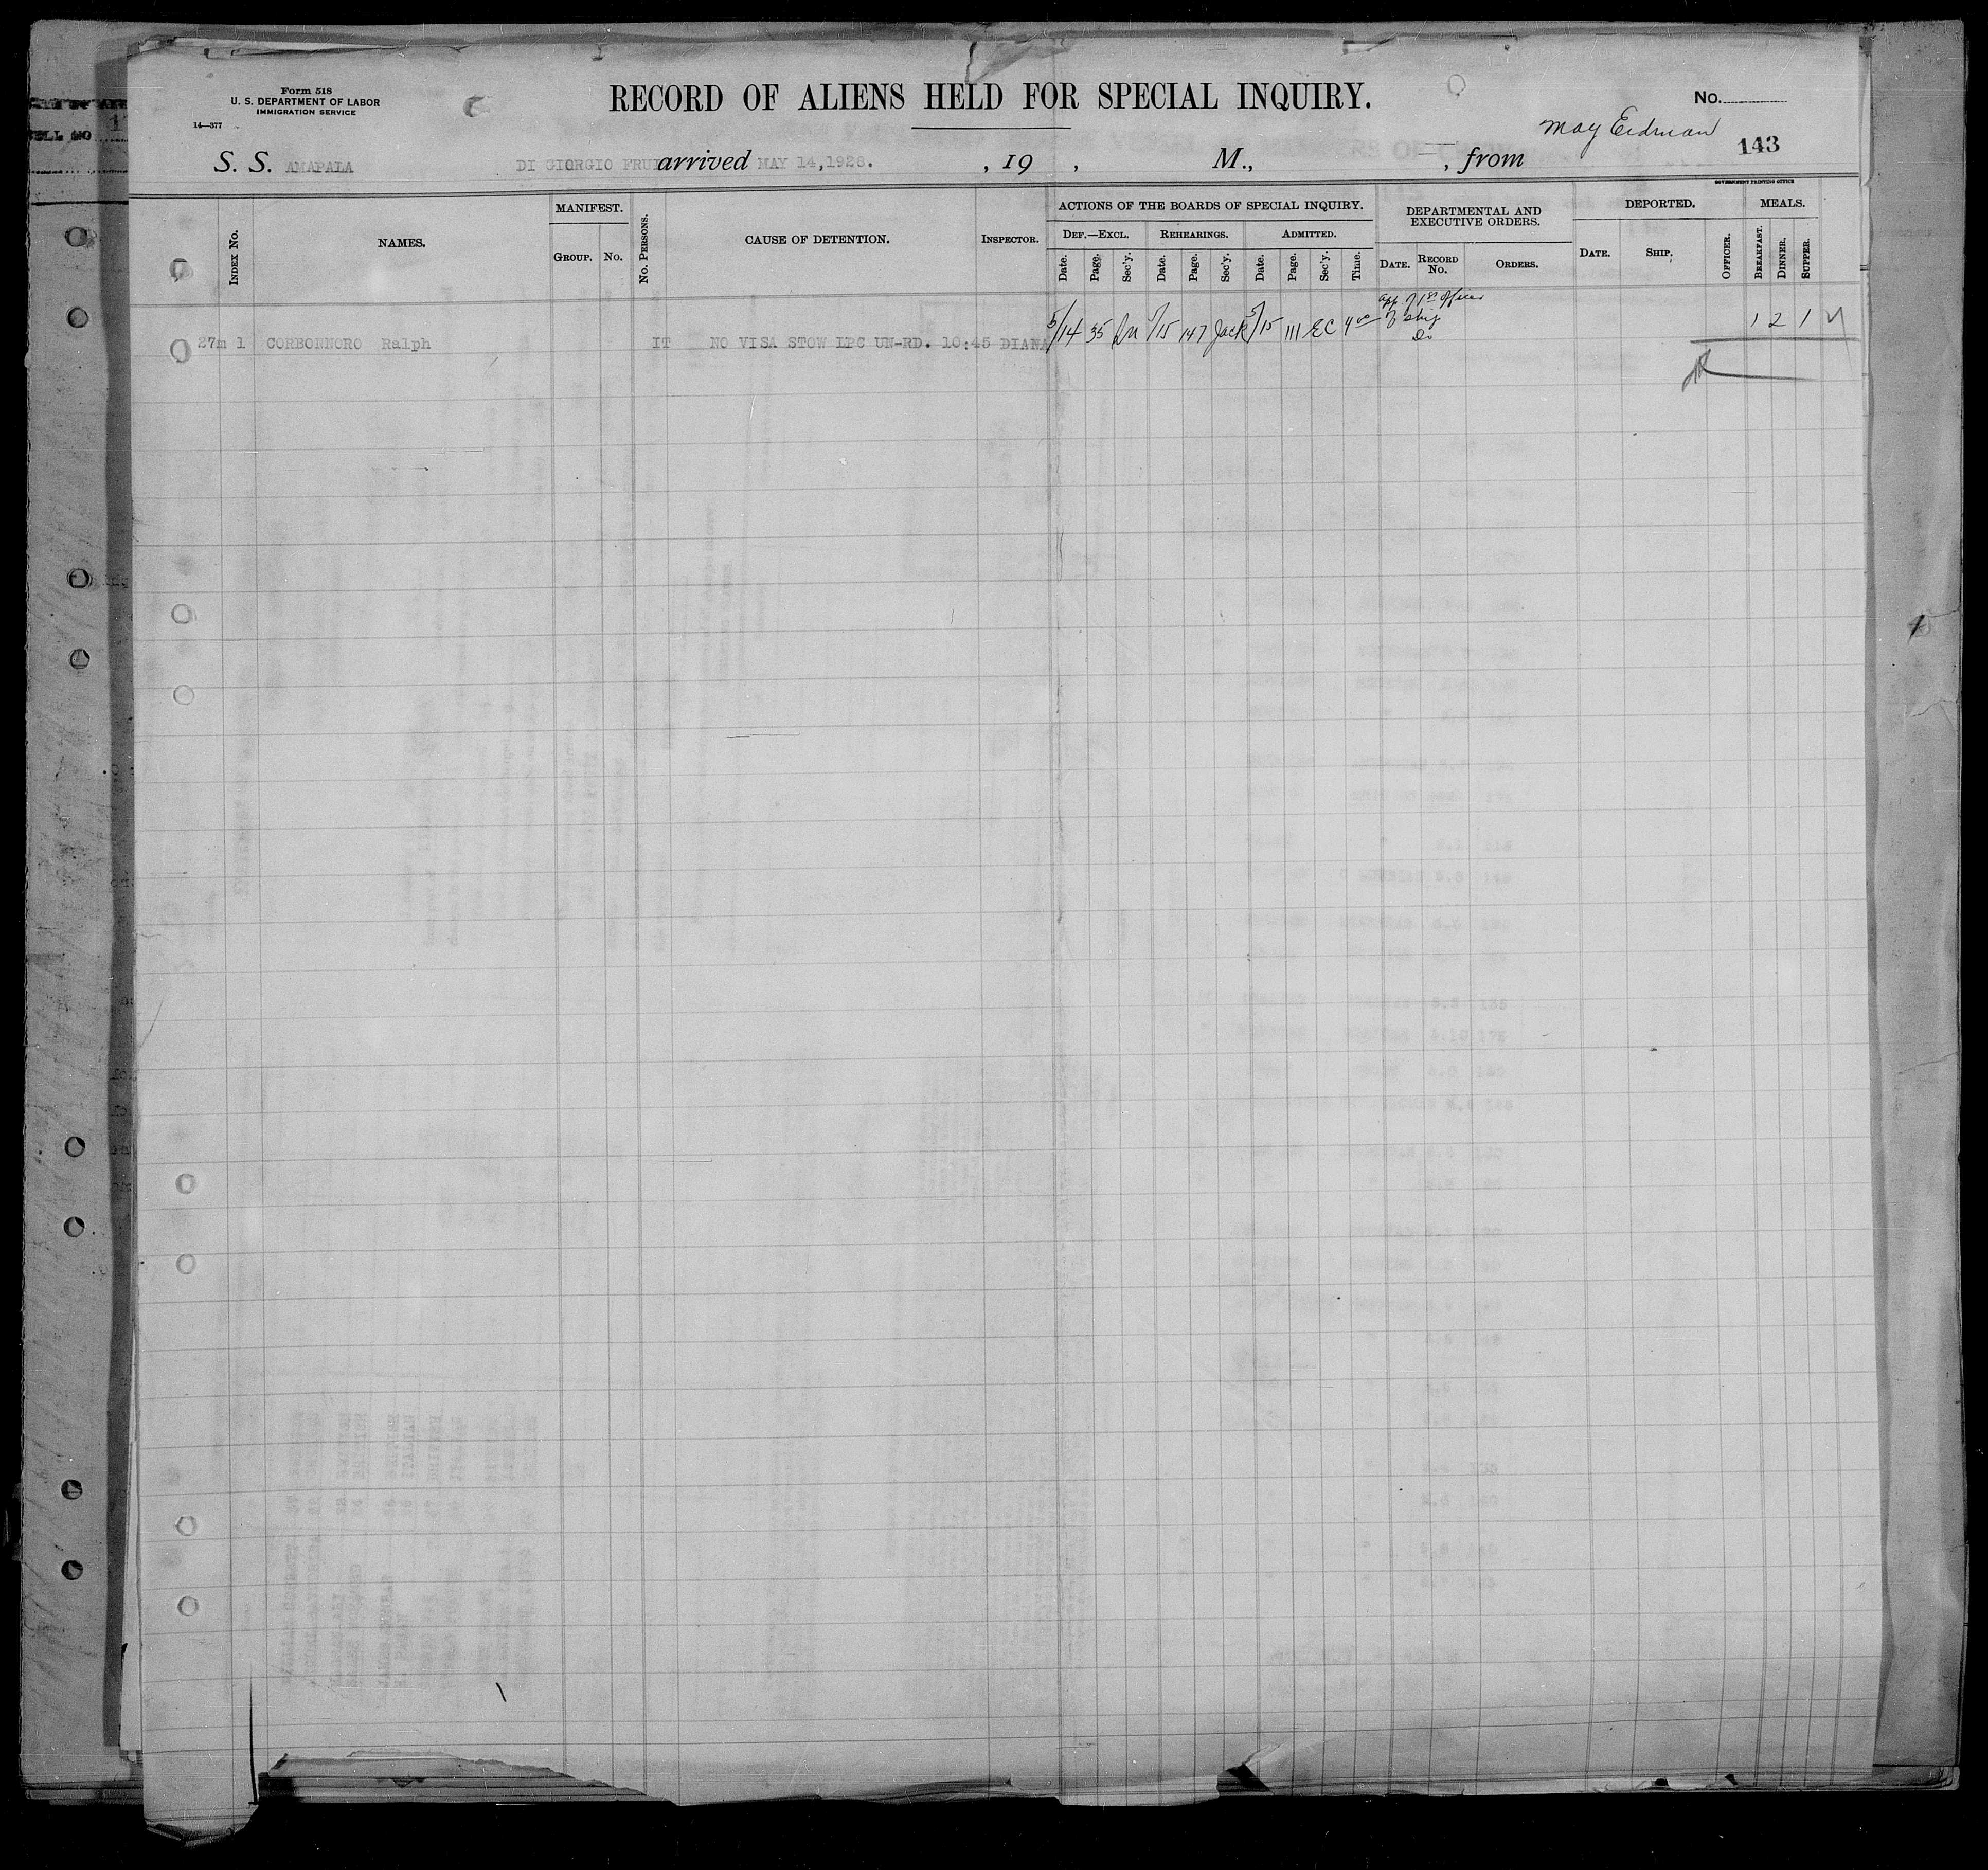 Form 518
U. S. DEPARTMENT OF LABOR
IMMIGRATION SERVICE
14—377
RECORD OF ALIENS HELD FOR SPECIAL INQUIRY.
No.
May Erdman
143
S. S. AMAPALA DI GIORGIO FRUI arrived MAY 14,1928. , 19 , M., , from
GOVERNMENT PRINTING OFFICE
INDEX No. NAMES. MANIFEST. GROUP. No. No. PERSONS. CAUSE OF DETENTION. INSPECTOR.
ACTIONS OF THE BOARDS OF SPECIAL INQUIRY.
DEF.—EXCL. REHEARINGS. ADMITTED.
Date. Page. Sec'y. Date. Page. Sec'y. Date. Page. Sec'y. Time.
DEPARTMENTAL AND
EXECUTIVE ORDERS.
DATE. RECORD No. ORDERS.
DEPORTED.
DATE. SHIP. OFFICER.
MEALS.
BREAKFAST. DINNER. SUPPER.
app. of 1st officer
of ship
27m 1 CORBONNORO Ralph IT NO VISA STOW LPC UN-RD. 10:45 DIANA 5/14 35 5/15 147 Jack 5/15 111 EC 4 00 1 2 1